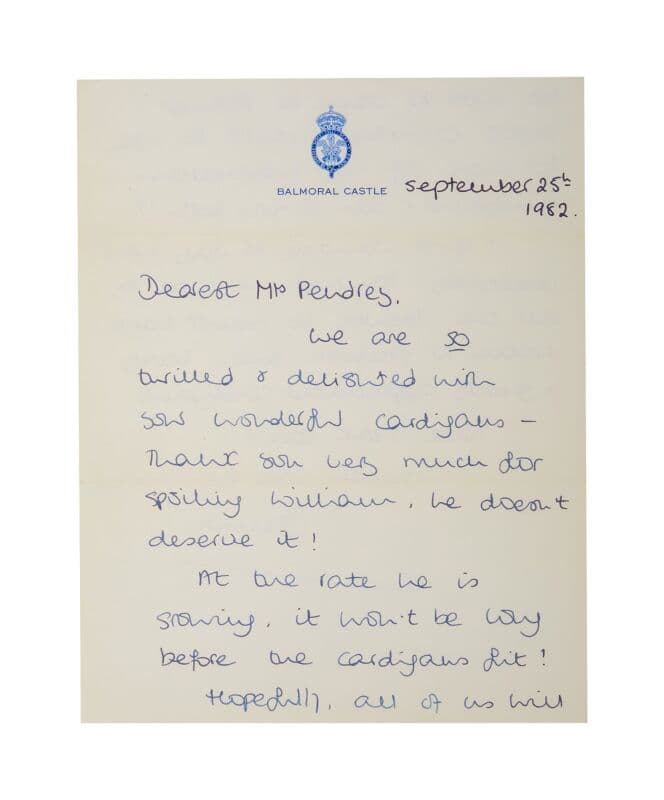 BALMORAL CASTLE
September 25th
1982.
Dearest Mrs Pendrey,
We are so
thrilled & delighted with
your wonderful cardigans –
Thank you very much for
spoiling William, he doesn't
deserve it!
At the rate he is
growing, it won't be long
before the cardigans fit!
Hopefully, all of us will